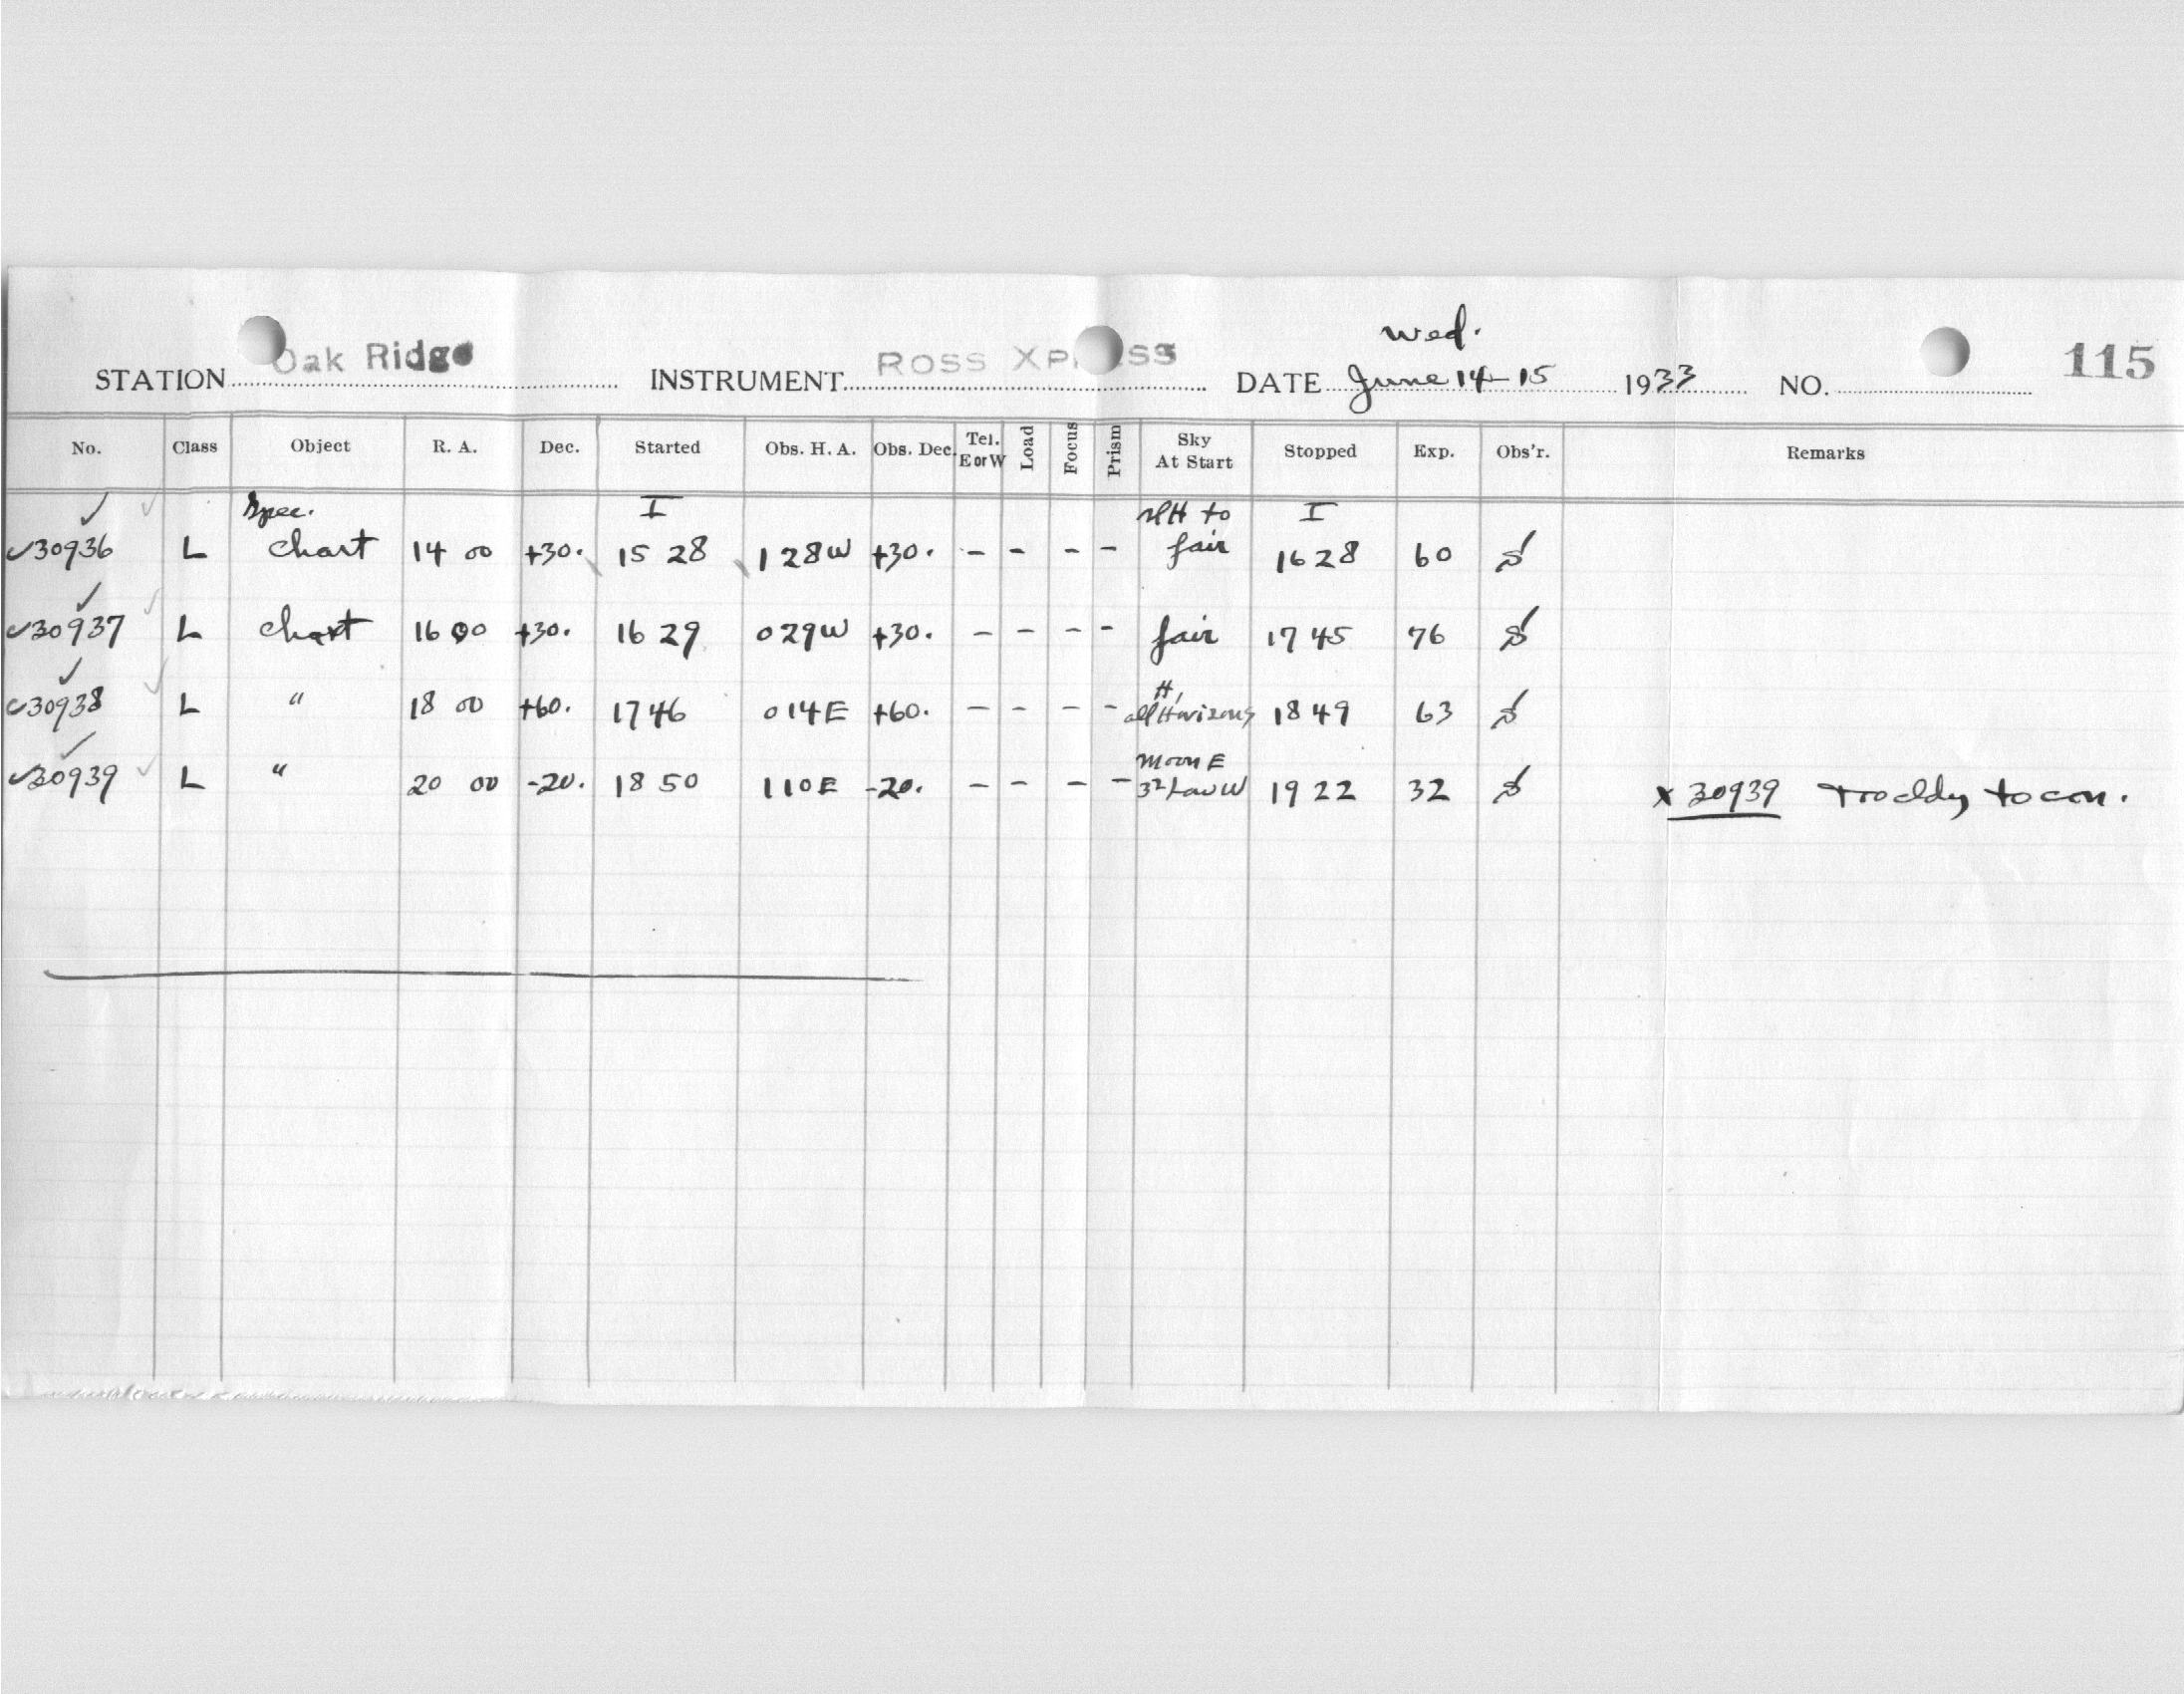 Wed.
STATION Oak Ridge INSTRUMENT ROSS XPRESS DATE June 14-15 1933 NO. 115
No. Class Object R. A. Dec. Started Obs. H. A. Obs. Dec. Tel. E or W Load Focus Prism Sky At Start Stopped Exp. Obs'r. Remarks
Spec. I to I
30936 L chart 14 00 +30. 15 28 1 28 W +30. - - - - fair 16 28 60
30937 L chart 16 00 +30. 16 29 0 29 W +30. - - - - fair 17 45 76
H,
30938 L " 18 00 +60. 17 46 0 14 E +60. - - - - all Horizons 18 49 63
Moon E
30939 L " 20 00 -20. 18 50 1 10 E -20. - - - - Low W 19 22 32 x 30939 to con.